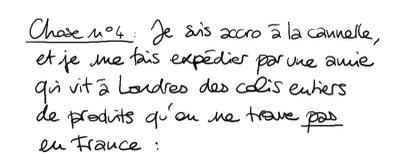 Chose n°4 : Je suis accro à la cannelle,
et je me fais expédier par une amie
qui vit à Londres des colis entiers
de produits qu'on ne trouve pas
en France :